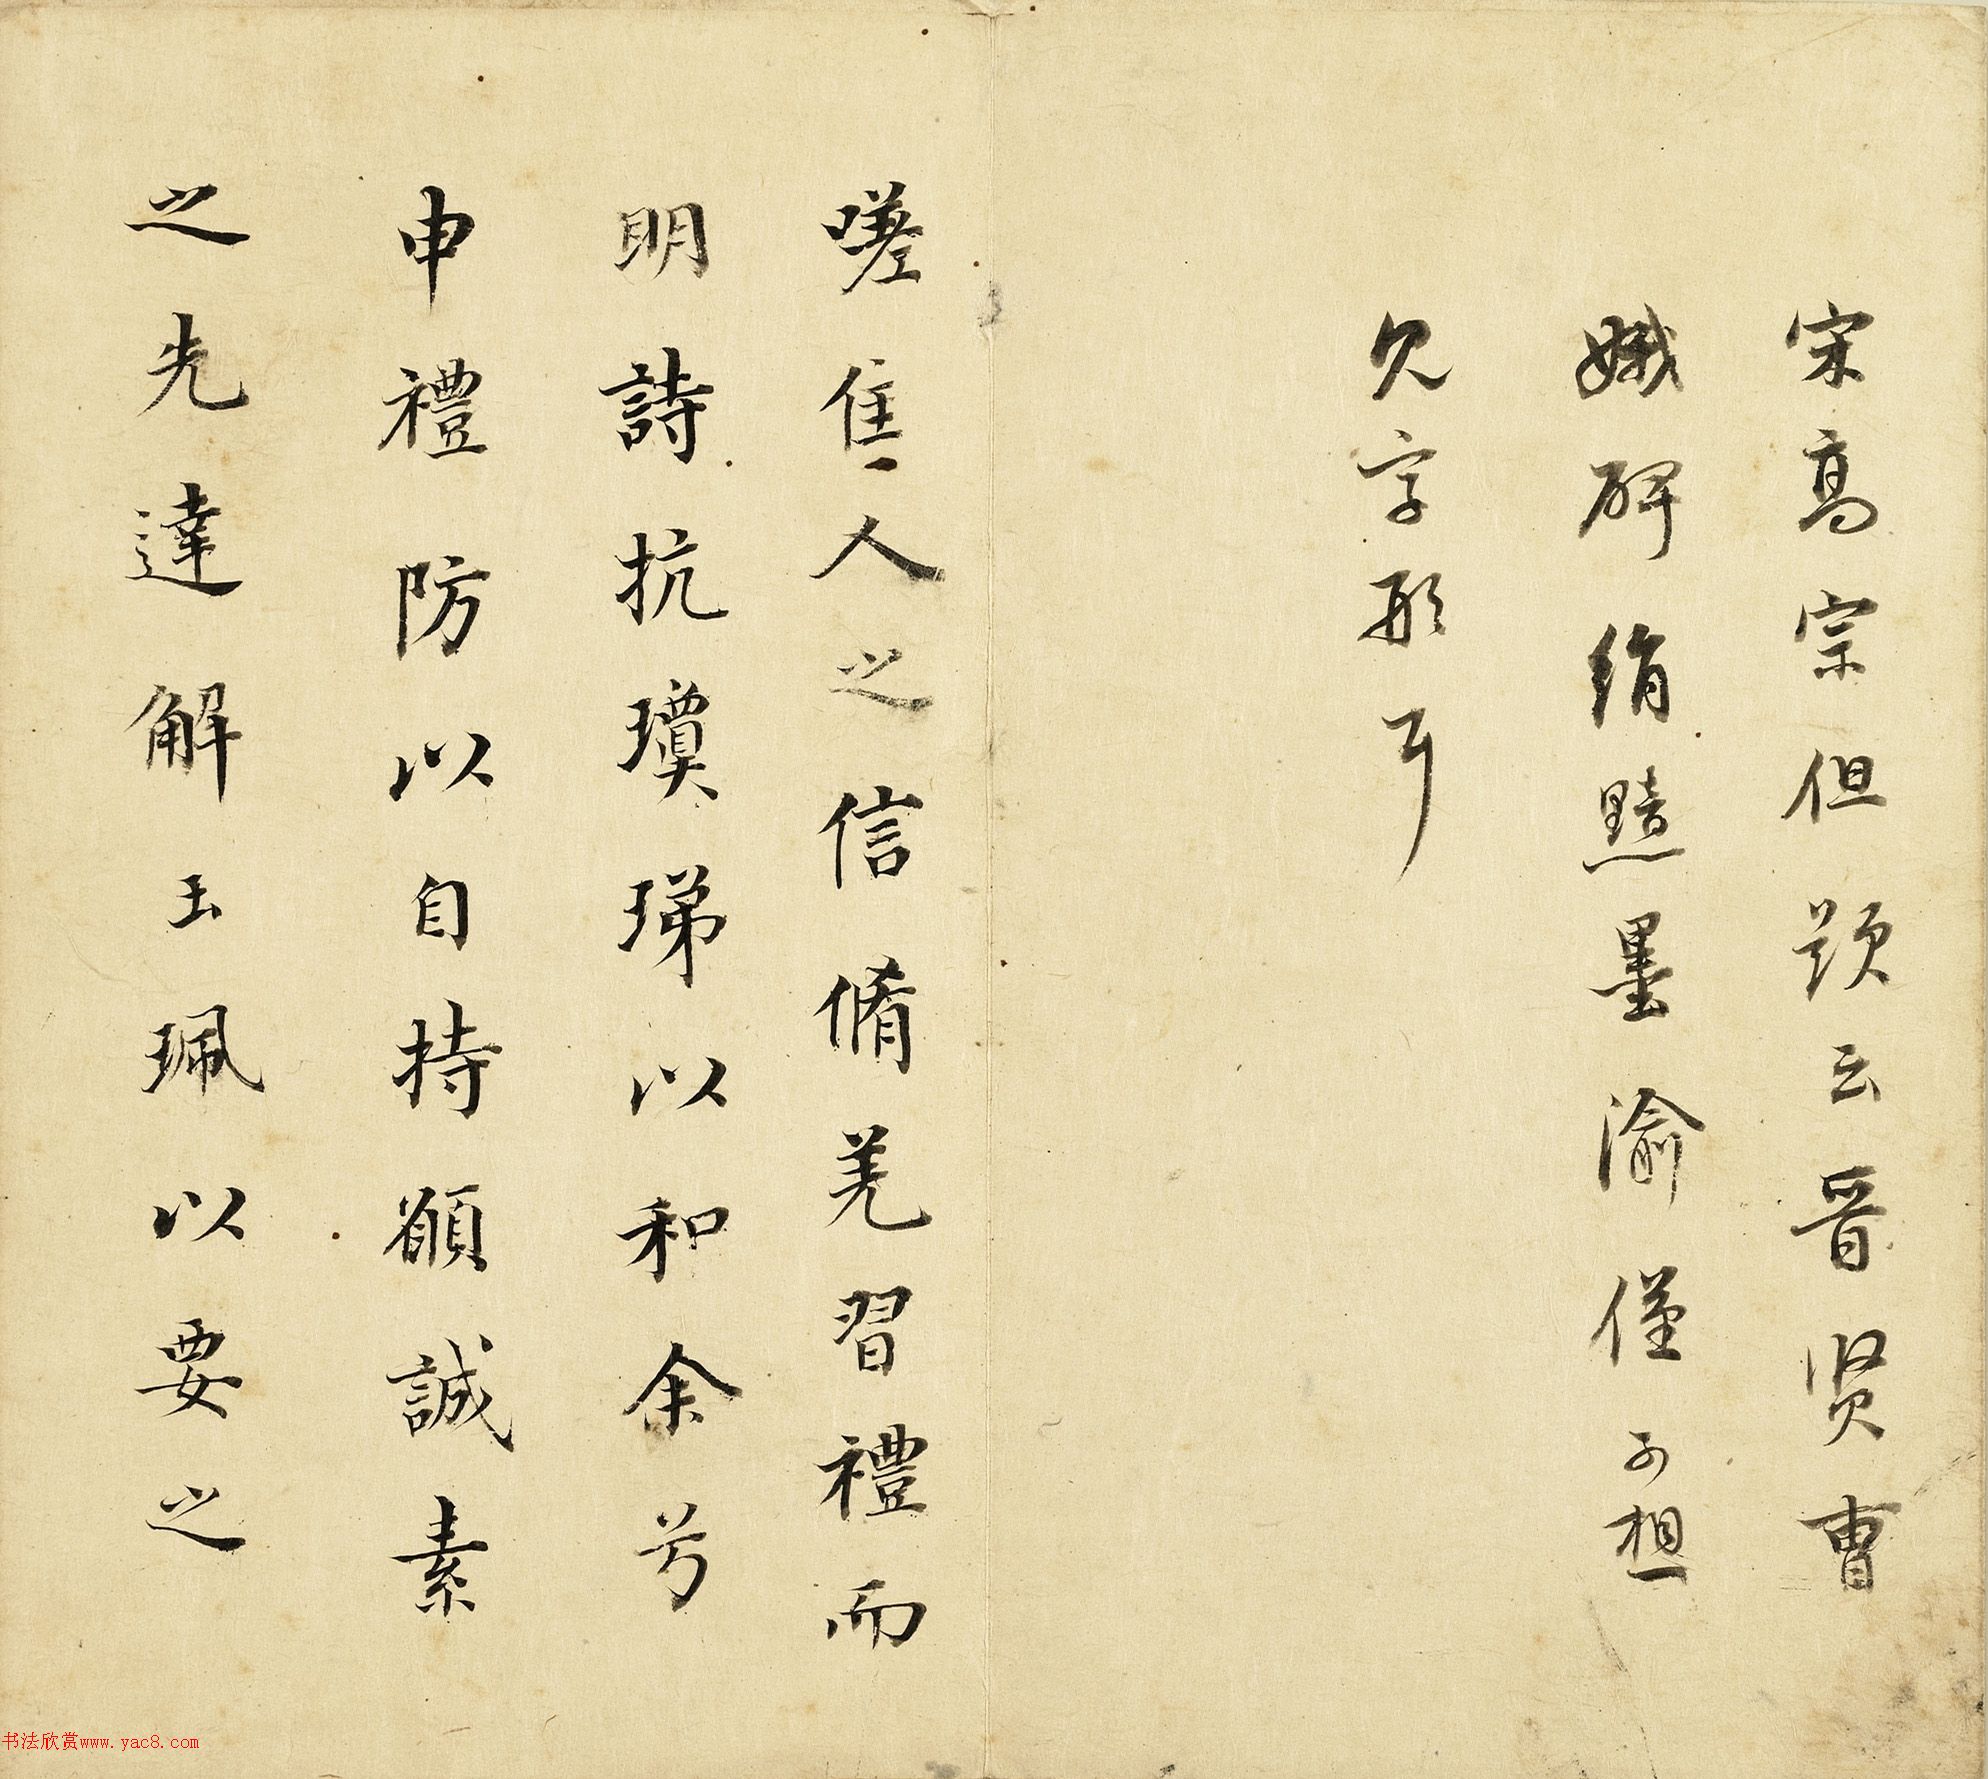 宋高宗但題云晉賢曹
娥碑絹黯墨渝僅可想
見字形耳
嗟佳人之信脩羌習禮而
明詩抗瓊珶以和余兮
申禮防以自持願誠素
之先達解玉珮以要之
书法欣赏www.yac8.com